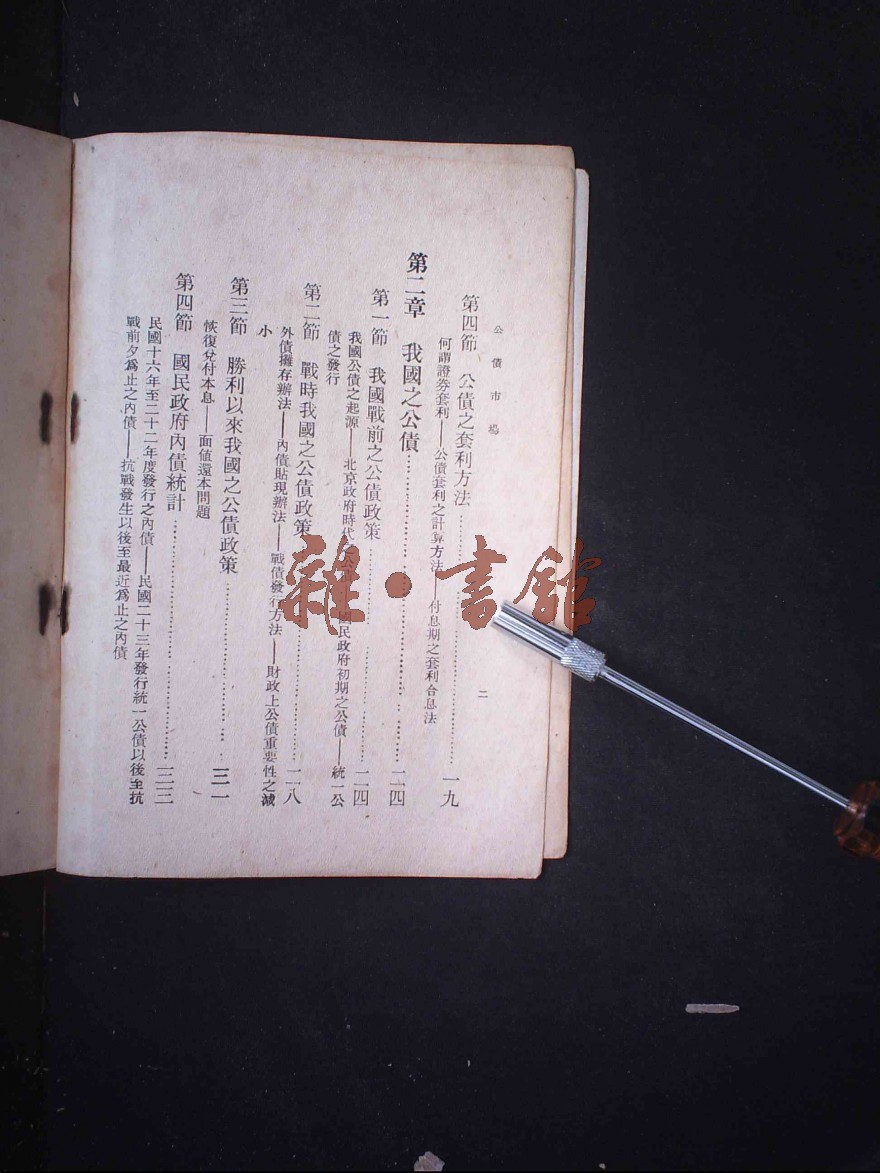 公債市場
二
第四節 公債之套利方法……一九
何謂證券套利——公債套利之計算方法——付息期之套利合息法
第二章 我國之公債……二四
第一節 我國戰前之公債政策……二四
我國公債之起源——北京政府時代 國民政府初期之公債——統一公
債之發行
第二節 戰時我國之公債政策……二八
外債攤存辦法——內債貼現辦法——戰債發行方法——財政上公債重要性之減
小
第三節 勝利以來我國之公債政策……三一
恢復兌付本息——面值還本問題
第四節 國民政府內債統計……三三
民國十六年至二十二年度發行之內債——民國二十三年發行統一公債以後至抗
戰前夕爲止之內債——抗戰發生以後至最近爲止之內債
雜·書館